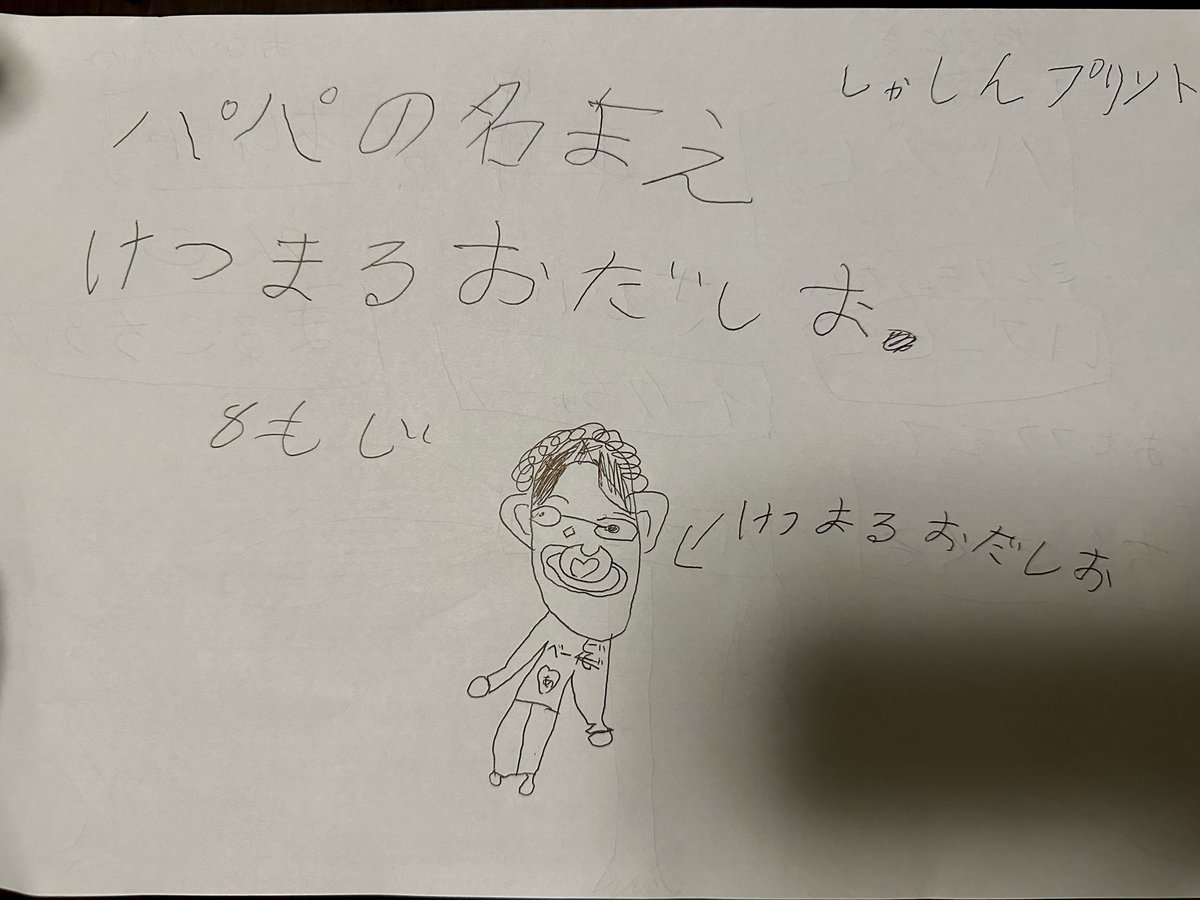 しゃしんプリント
パパの名まえ
けつまるおだしお。
8もじ
けつまるおだしお
べー
あ